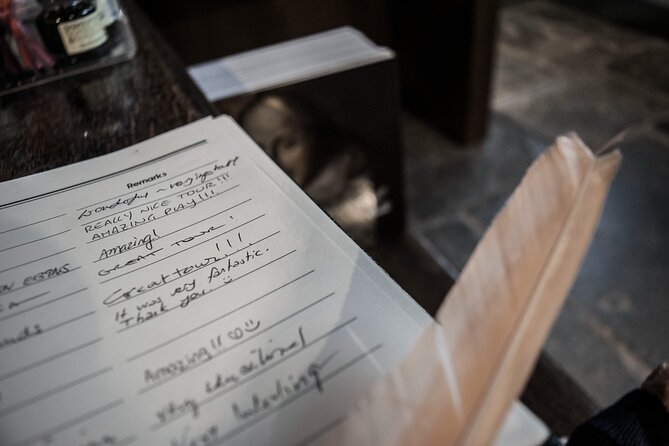 Remarks
Wonderful ~ very
REALLY NICE TOUR!!!
AMAZING PLAY!!!
Amazing!
GREAT TOUR!
Great tour!!!
It was very fantastic.
Thank you ☺
Amazing!! ♡☺
very educational
Very